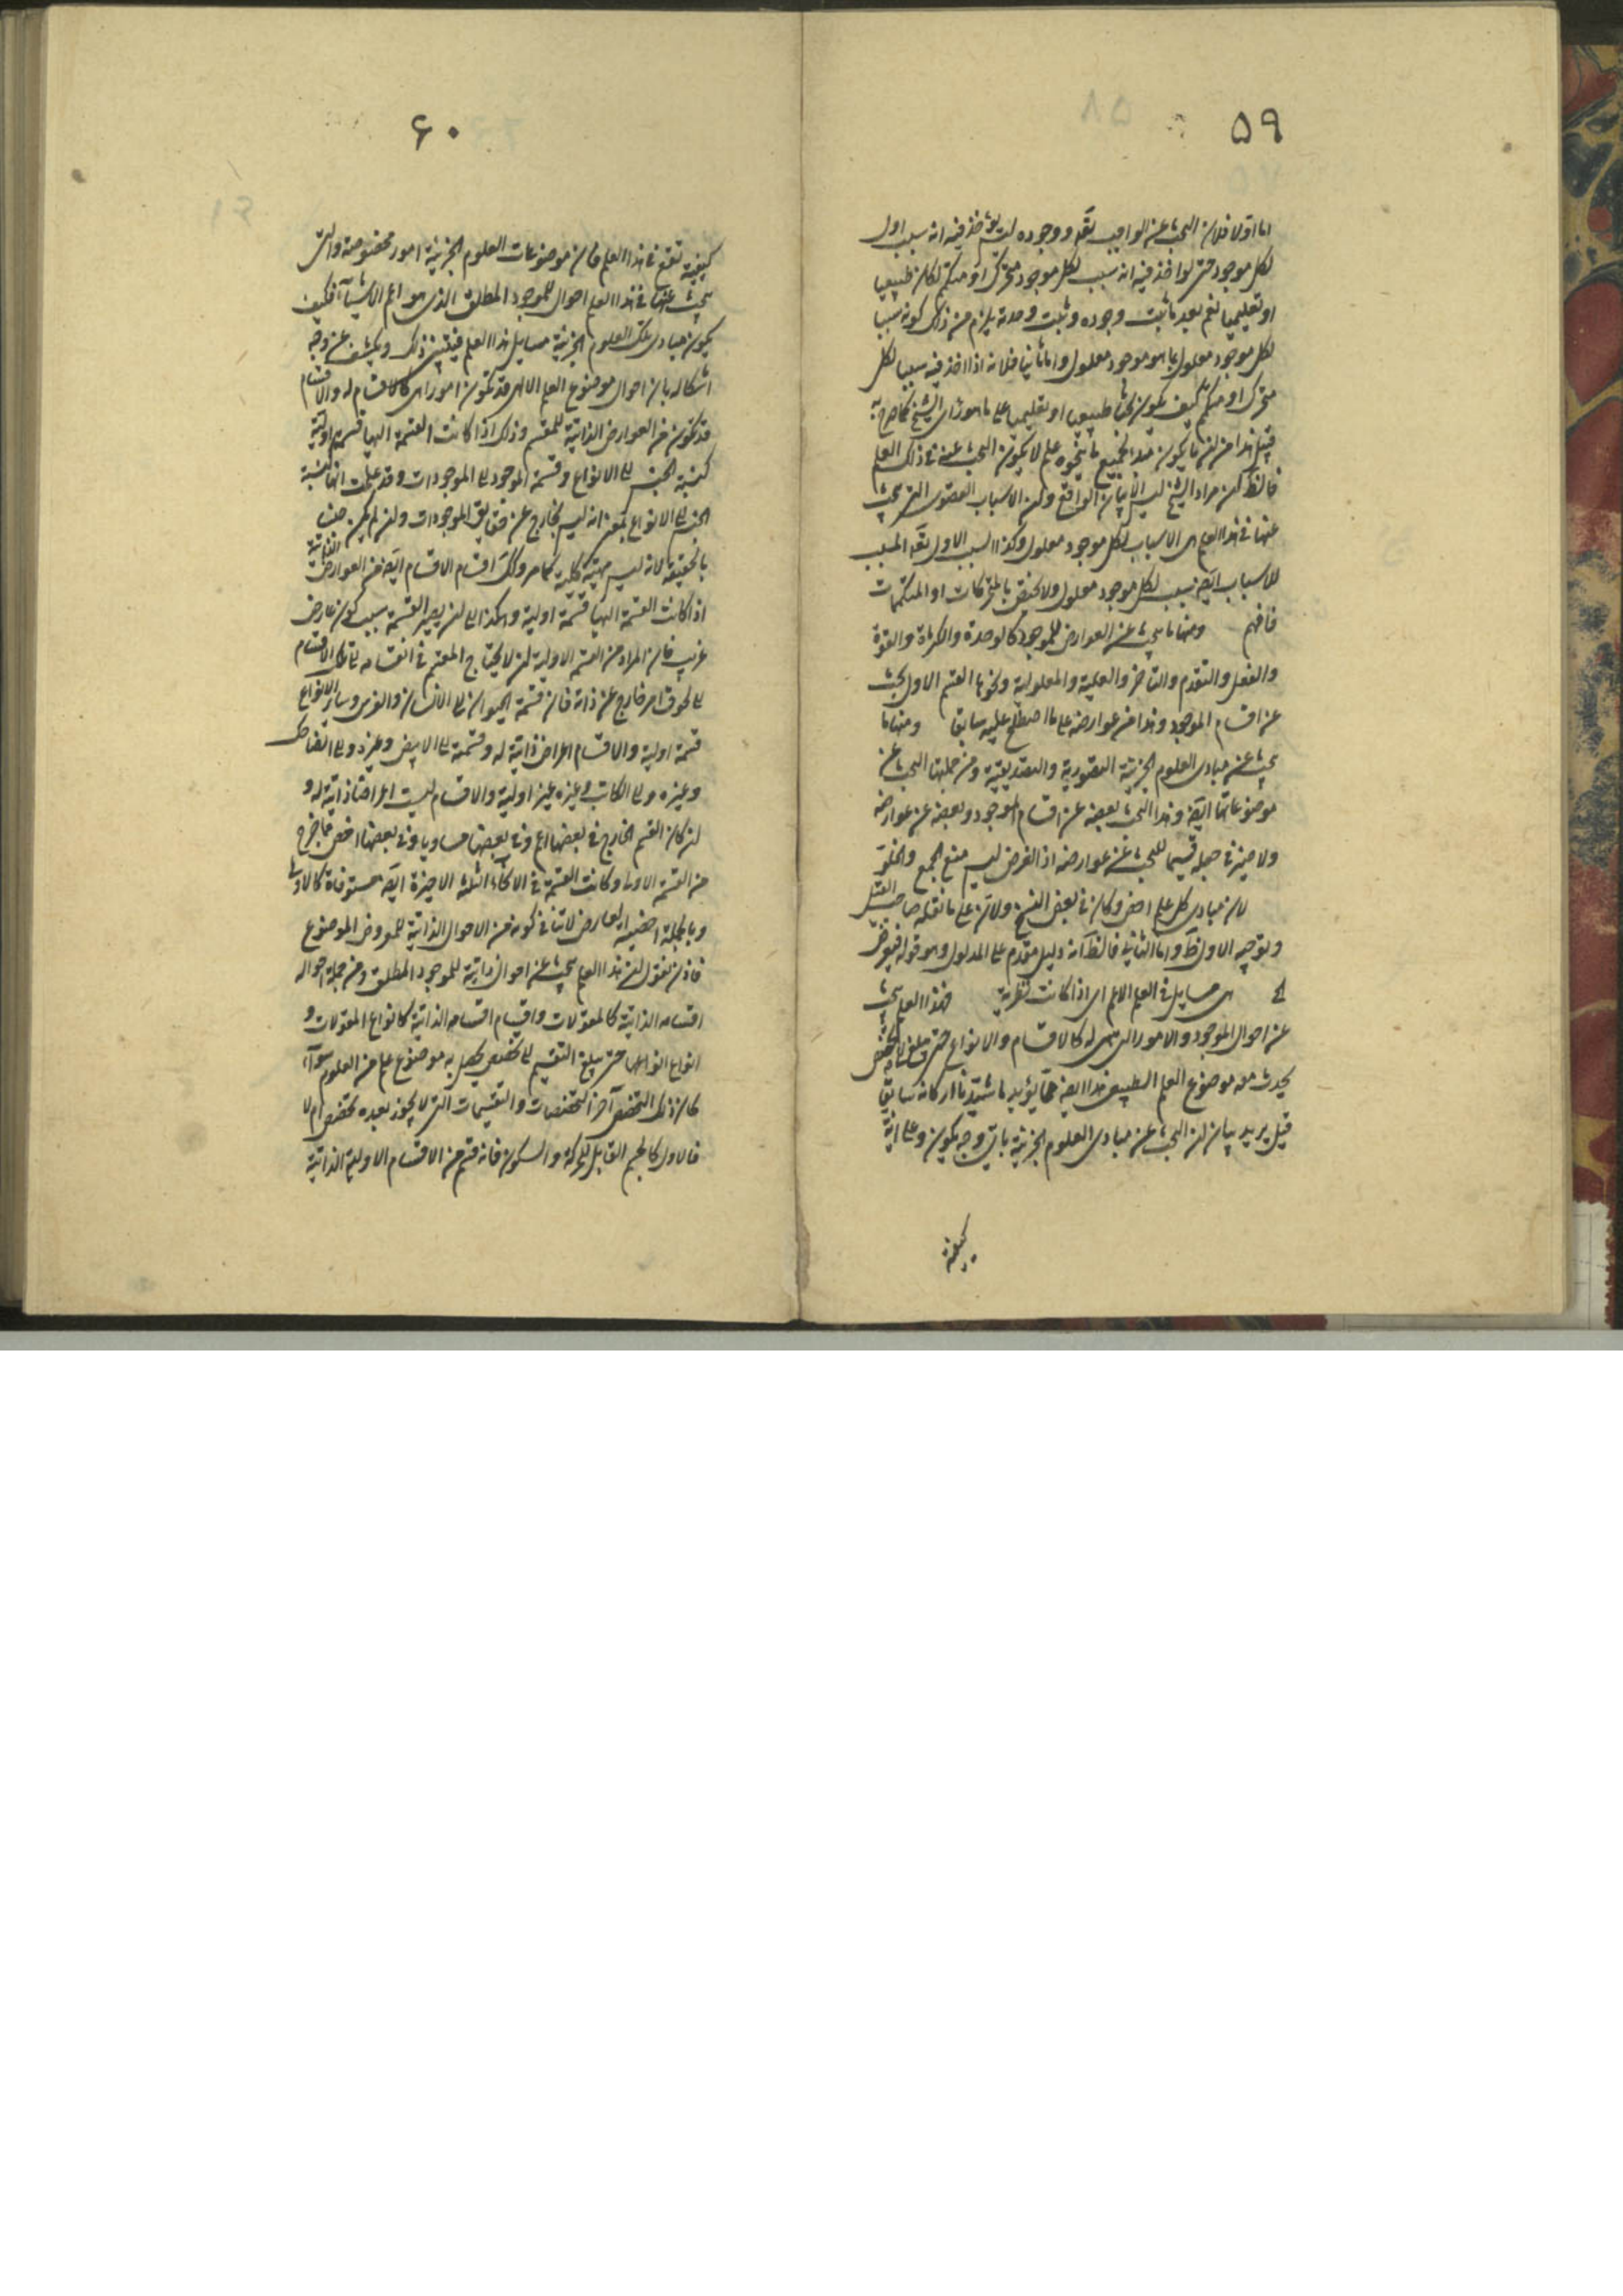 ٥٩
اما اولا فلان البحث عن الواجب تعه ووجوده لم يؤخذ فيه انه سبب اول
لكل موجود حتى لو اخذ فيه انه سبب لكل موجود متحرك او متكمم لكان طبيعيا
او تعليميا نعم بعد ما ثبت وجوده وثبت وحدته يلزم من ذلك كونه سببا
لكل موجود معلول بما هو موجود معلول واما ثانيا فلانه اذا اخذ فيه سببا لكل
متحرك او متكمم كيف يكون بحثا طبيعيا او تعليميا على ما هو رأى الشيخ كما صرح به
قبل هذا من لن ما يكون مبدء لجميع ما ينحوه علم لا يكون البحث عنه في ذلك العلم
فالظ لن مراد الشيخ ليس الا بيان الواقع ولن الاسباب القصوى التى يبحث
عنها في هذا العلم هى الاسباب لكل موجود معلول وكذا السبب الاول تعه المسبب
للاسباب ايضه سبب لكل موجود معلول ولا يختص بالمتحركات او المتكممات
فافهم ومنها ما يبحث عن العوارض للموجود كالوحدة والكثرة والقوة
والفعل والتقدم والتاخر والعلية والمعلولية ونحوها القسم الاول يبحث
عن اقسام الموجود وهذا عن عوارضه على ما اصطلح عليه سابقا ومنها ما
يبحث عن مبادى العلوم الجزئية التصورية والتصديقية ومن جملتها البحث عن
موضوعاتها ايضه وهذا البحث بعضه عن اقسام الموجود وبعضه عن عوارضه
ولا ضير في جعله قسيما للبحث عن عوارضه اذ الغرض ليس منع الجمع والخلو
لان مبادى كل علم اخص وكان في بعض النسخ ولان على ما نقله صاحب القيل
وتوجيه الاول ظ واما الثانى فالظ انه دليل مقدم على المدلول وهو قوله فيعرض
هى مسايل في العلم الاعم اى اذا كانت نظرية فهذا العلم يبحث
عن احوال الموجود والامور التى هى له كالاقسام والانواع حتى يبلغ الى تخصيص
يحدث معه موضوع العلم الطبيعى هذا ايضه مما يؤيد ما شيدنا اركانه سابقا
قيل يريد بيان لن البحث عن مبادى العلوم الجزئية باى وجه يكون وعلى اية
كيفية
٦٠
كيفية تقع في هذا العلم فان موضوعات العلوم الجزئية امور مخصوصة والتى
يبحث عنها في هذا العلم احوال للموجود المطلق الذى هو اعم الاشياء فكيف
يكون مبادى تلك العلوم الجزئية مسايل هذا العلم فبين ذلك ويكشف عن وجه
اشكاله بان احوال موضوع العلم الالهى قد تكون امورا هى كالاقسام له والاقسام
قد تكون من العوارض الذاتية للمقسم وذلك اذا كانت القسمة اليها قسمة اولية
كنسبة الجنس الى الانواع وقسمة الموجود الى الموجودات وقد علمت انها كنسبة
الجنس الى الانواع بمعنى انه ليس بخارج عن حقايق الموجودات ولن لم يكن جنسا
بالحقيقة لانه ليس مهية كلية كما مر وكك اقسام الاقسام ايضه من العوارض الذاتية
اذا كانت القسمة اليها قسمة اولية وهكذا الى لن يصير القسمة بسبب كون عارض
غريب فان المراد من القسمة الاولية لن لا يحتاج المقسم في انقسامه الى تلك الاقسام
الى لحوق امر خارج عن ذاته فان قسمة الحيوان الى الانسان والفرس وساير الانواع
قسمة اولية والاقسام اعراض ذاتية له وقسمته الى الابيض وغيره والى الضاحك
وغيره والى الكاتب وغيره غير اولية والاقسام ليست اعراضا ذاتية له و
لن كان القسم الخارج في بعضها اعم وفي بعضها مساويا وفي بعضها اخص مما خرج
من القسمة الاولى وكانت القسمة في الثلثة الاخيرة ايضه مستوفاة كالاولى
وبالجملة اخصية العارض لا تنافي كونه من الاحوال الذاتية للمعروض الموضوع
فاذن نقول لن هذا العلم يبحث عن احوال ذاتية للموجود المطلق ومن جملة احواله
اقسامه الذاتية كالمقولات واقسام اقسامه الذاتية كانواع المقولات و
انواع انواعها حتى يبلغ التقسيم الى تخصيص يحصل به موضوع علم من العلوم سواء
كان ذلك التخصص آخر التخصصات والتقسيمات التى لا يجوز بعده تخصص ام لا
فالاول كالجسم القابل للحركة والسكون فانه قسم من الاقسام الاولية الذاتية